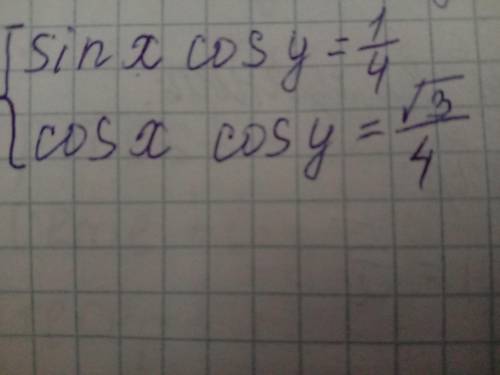 sin x cos y = 1/4
cos x cos y = √3/4